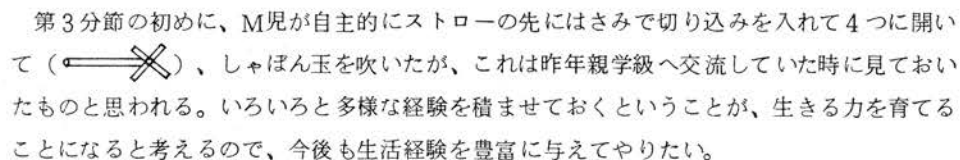 第3分節の初めに、M児が自主的にストローの先にはさみで切り込みを入れて4つに開い
て（　　　）、しゃぼん玉を吹いたが、これは昨年親学級へ交流していた時に見ておい
たものと思われる。いろいろと多様な経験を積ませておくということが、生きる力を育てる
ことになると考えるので、今後も生活経験を豊富に与えてやりたい。